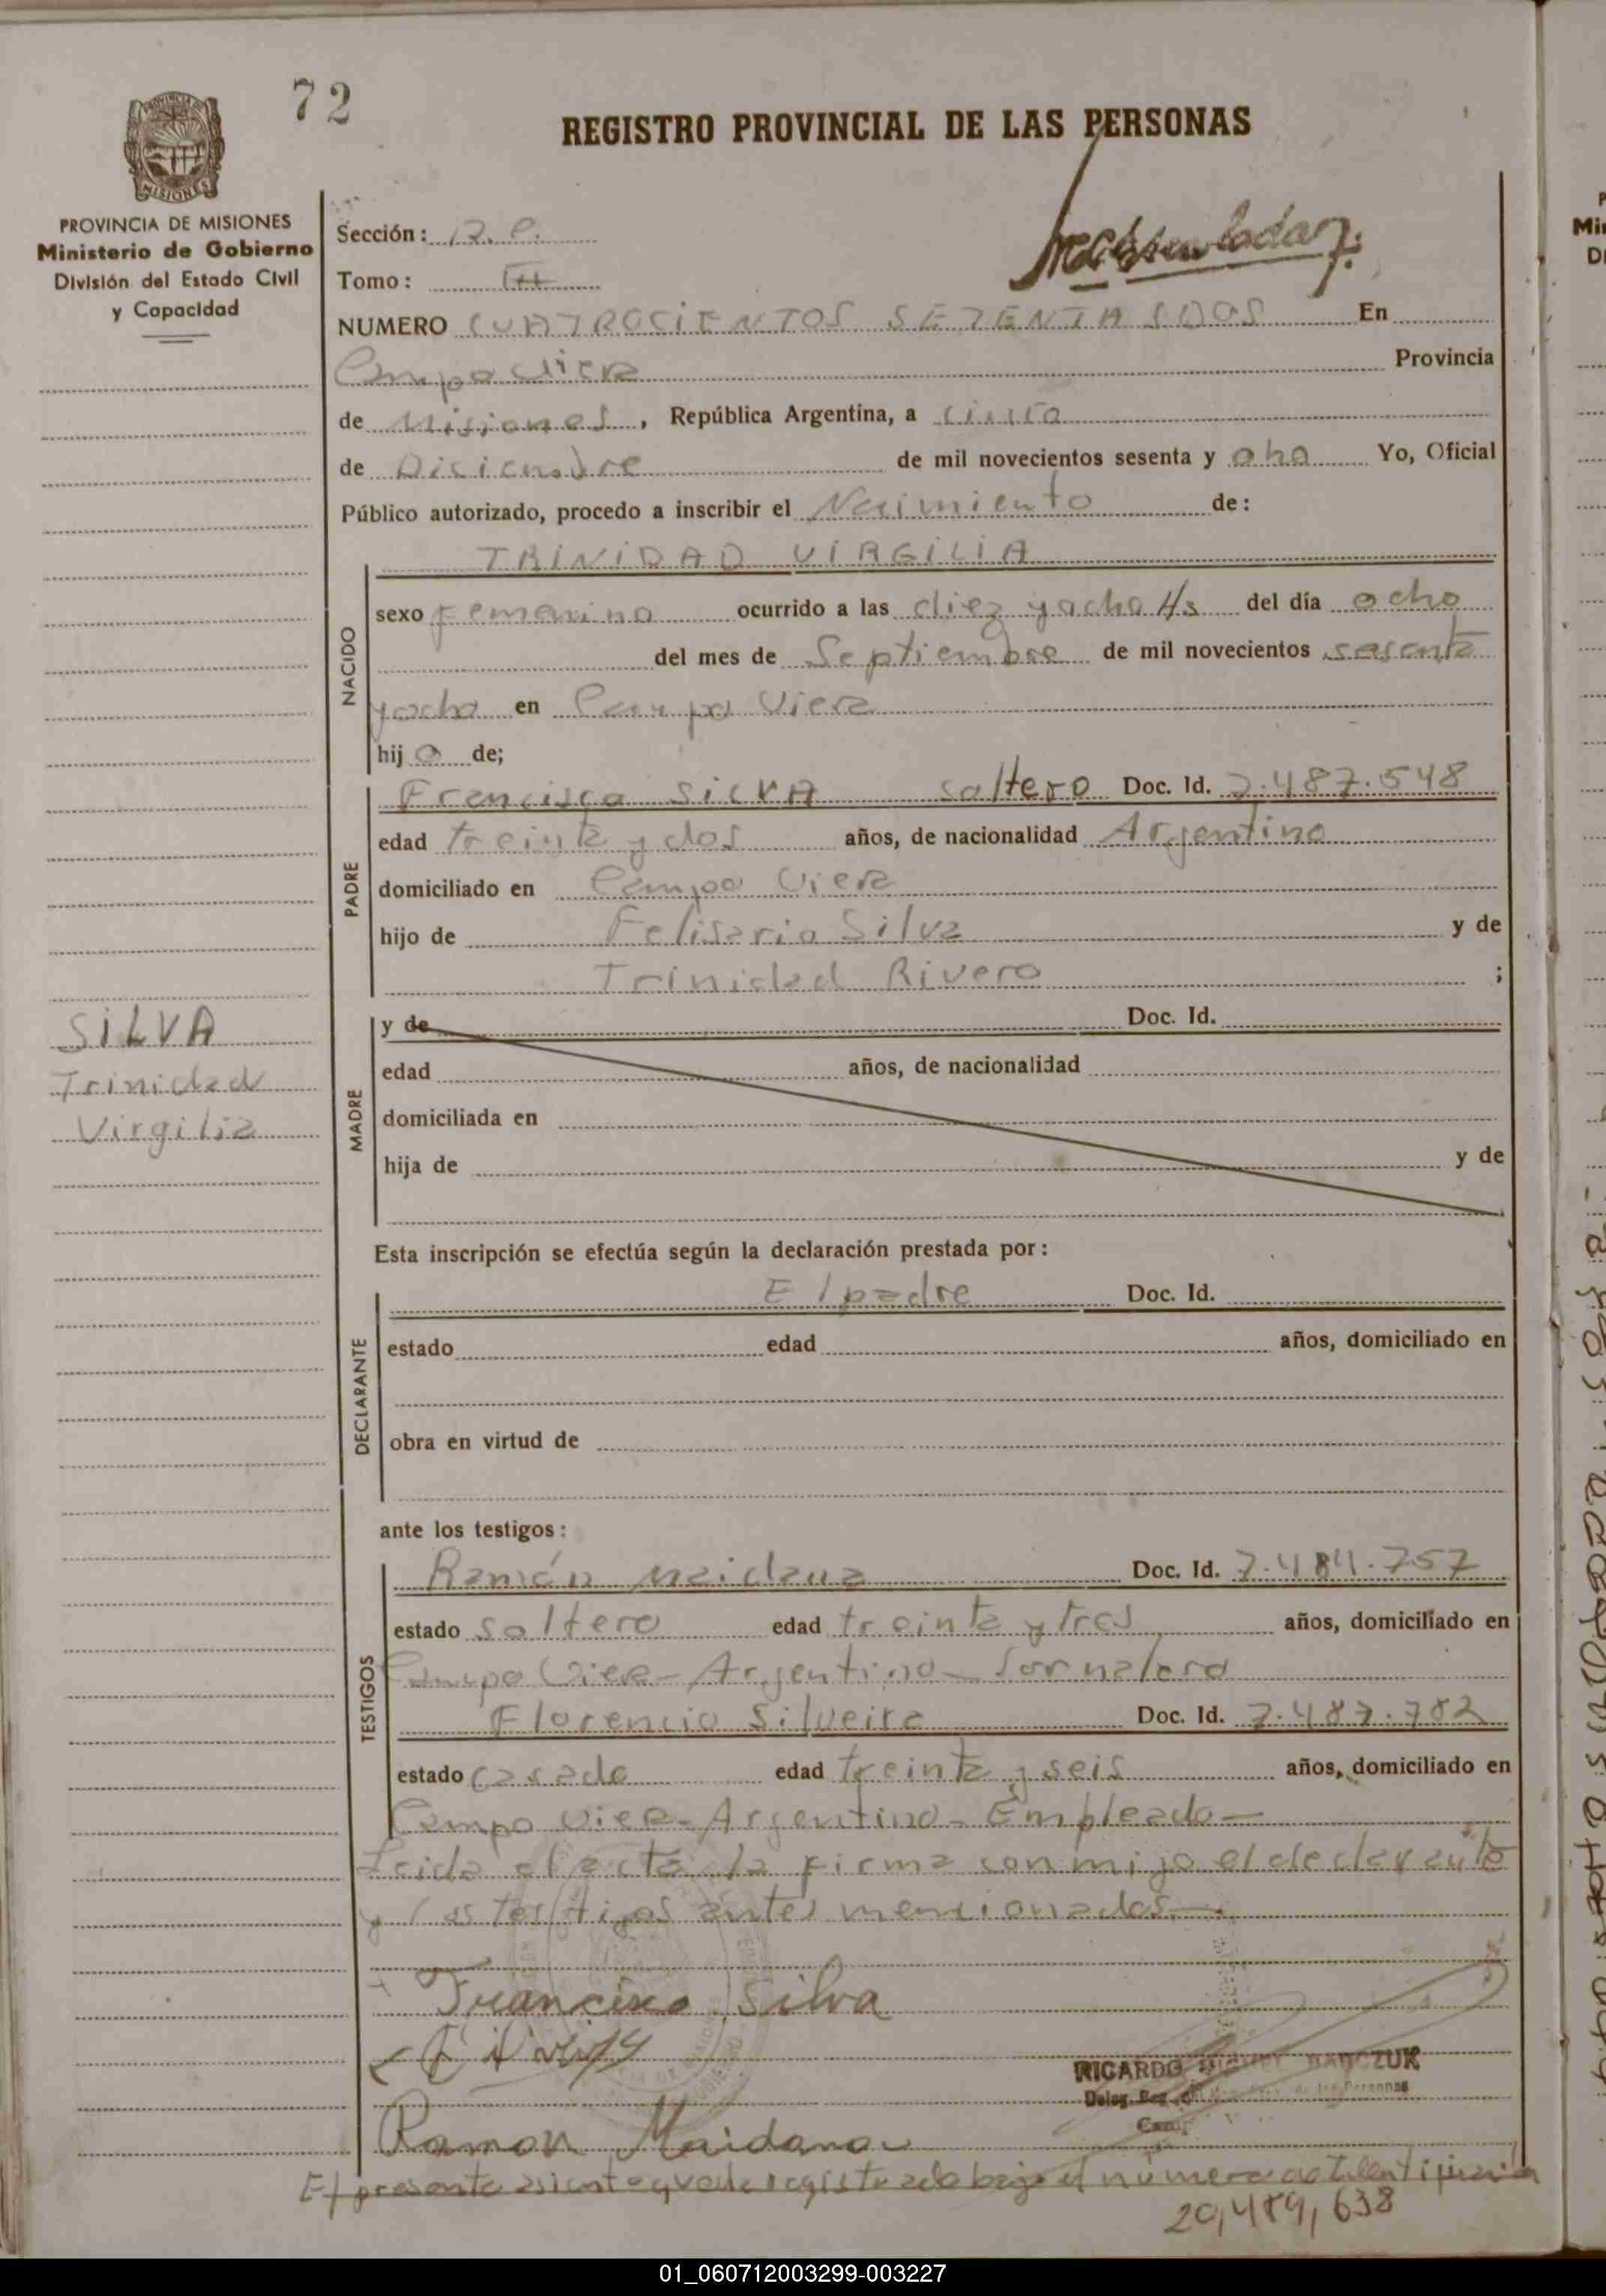 72
REGISTRO PROVINCIAL DE LAS PERSONAS
PROVINCIA DE MISIONES
Ministerio de Gobierno
División del Estado Civil
y Capacidad
Sección:
Tomo: III
NUMERO CUATROCIENTOS SETENTA Y DOS En
Campo Viera Provincia
de Misiones, República Argentina, a cinco
de Diciembre de mil novecientos sesenta y oho Yo, Oficial
Público autorizado, procedo a inscribir el Nacimiento de:
TRINIDAD VIRGILIA
NACIDO
sexo Femenino ocurrido a las diez y ocho Hs del día ocho
del mes de Septiembre de mil novecientos sesenta
y ocho en Campo Viera
hij a de;
PADRE
Francisco SILVA soltero Doc. Id. 7.487.548
edad treinta y dos años, de nacionalidad Argentino
domiciliado en Campo Viera
hijo de Felisario Silva y de
Trinidad Rivero ;
SILVA
Trinidad
Virgilia
MADRE
y de Doc. Id.
edad años, de nacionalidad
domiciliada en
hija de y de
Esta inscripción se efectúa según la declaración prestada por:
DECLARANTE
El padre Doc. Id.
estado edad años, domiciliado en
obra en virtud de
ante los testigos:
TESTIGOS
Ramón Maidana Doc. Id. 7.484.757
estado soltero edad treinta y tres años, domiciliado en
Campo Viera - Argentino - Jornalero
Florencio Silveira Doc. Id. 7.487.782
estado casado edad treinta y seis años, domiciliado en
Campo Viera - Argentino - Empleado -
Leida el acta, la firma conmigo el declarante
y los testigos antes mencionados.-
Francisco Silva
RICARDO
Deleg. Reg. de las Personas
Ramon Maidana
El presente asiento queda registrado bajo el número de identificación
20,489,638
01_060712003299-003227